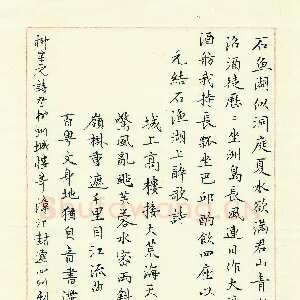 石魚湖似洞庭夏水欲滿君山青
酒徒歷歷坐洲島長風連日作大
酒舫我持長瓢坐巴邱酌飲四座以
元結石漁湖上醉歌詩
城上高樓接大荒海天
驚風亂飐芙蓉水密雨斜
嶺樹重遮千里目江流曲
百粵文身地猶自音書滯
柳宗元詩登柳州城樓寄漳汀封連四州刺